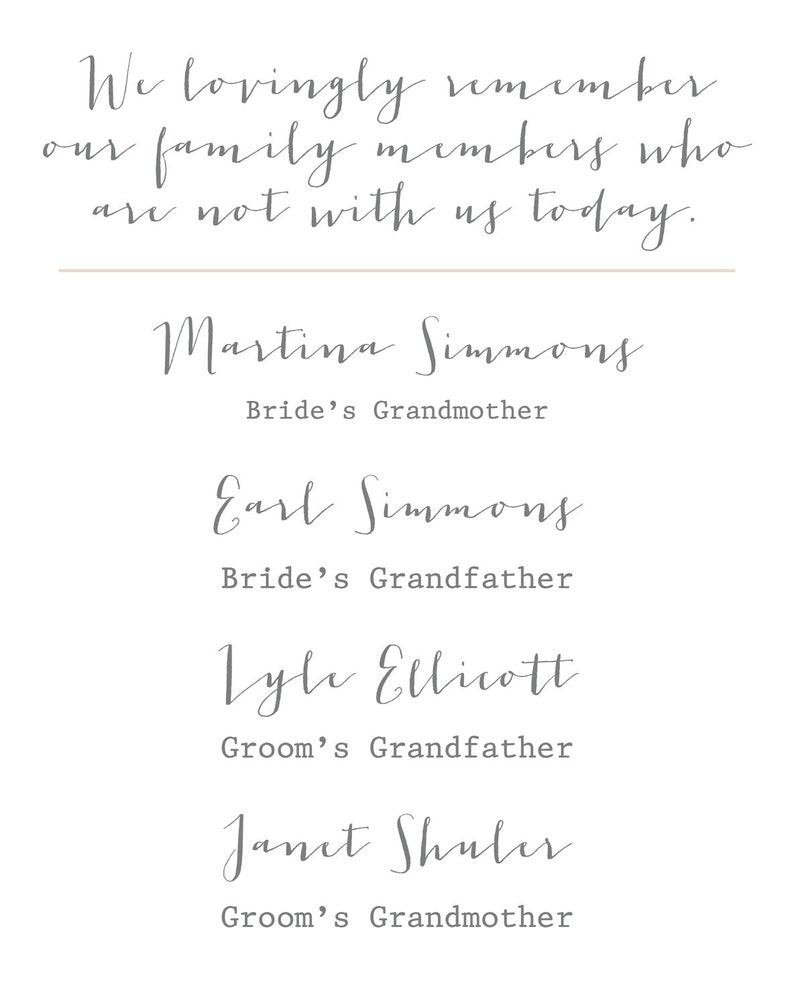 We lovingly remember
our family members who
are not with us today.
Martina Simmons
Bride’s Grandmother
Earl Simmons
Bride’s Grandfather
Lyle Ellicott
Groom’s Grandfather
Janet Shuler
Groom’s Grandmother